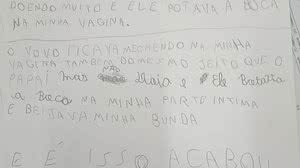 DOENDO MUITO E ELE BOTAVA A BOCA
NA MINHA VAGINA.
O VOVO FICAVA MECHENDO NA MINHA
VAGINA TAMBEM DO MESMO JEITO QUE O
PAPAI mas NÃO e Ele Botava
a Boca NA MINHA PARTE INTIMA
E BEIJAVA MINHA BUNDA
E E ISSO ACABOU